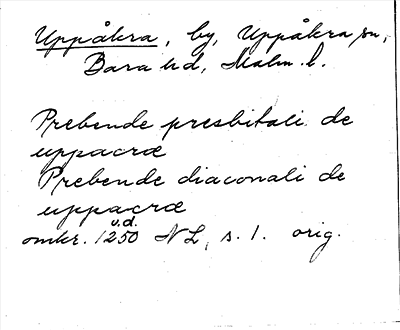 Uppåkra, by, Uppåkra sn,
Bara hd, Malm. l.
Prebende presbitali de
uppacræ
Prebende diaconali de
uppacræ
u.d.
omkr. 1250 NL, s. 1. orig.